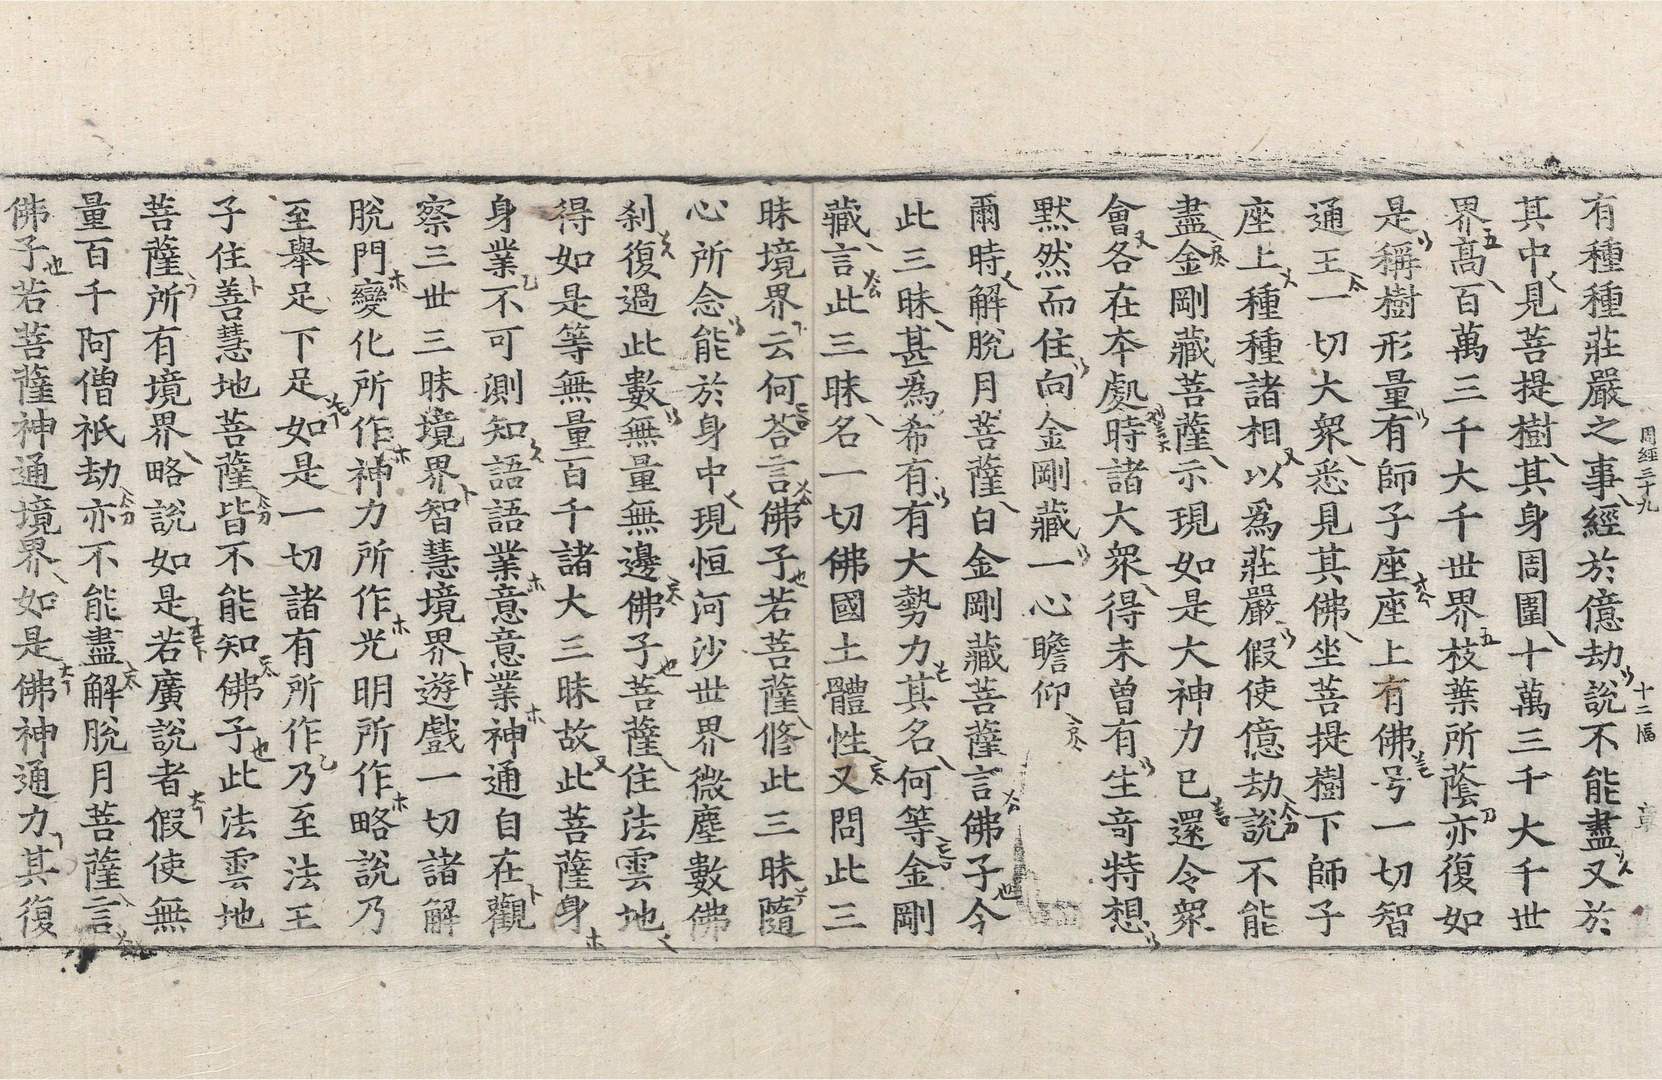 周經三十九 十二幅 草
有種種莊嚴之事經於億劫說不能盡又於
其中見菩提樹其身周圍十萬三千大千世
界高百萬三千大千世界枝葉所蔭亦復如
是稱樹形量有師子座座上有佛号一切智
通王一切大衆悉見其佛坐菩提樹下師子
座上種種諸相以爲莊嚴假使億劫說不能
盡金剛藏菩薩示現如是大神力已還令衆
會各在本處時諸大衆得未曾有生竒特想
默然而住向金剛藏一心瞻仰
爾時解脫月菩薩白金剛藏菩薩言佛子今
此三昧甚爲希有有大勢力其名何等金剛
藏言此三昧名一切佛國土體性又問此三
昧境界云何荅言佛子若菩薩修此三昧隨
心所念能於身中現恒河沙世界微塵數佛
刹復過此數無量無邊佛子菩薩住法雲地
得如是等無量百千諸大三昧故此菩薩身
身業不可測知語語業意意業神通自在觀
察三世三昧境界智慧境界遊戲一切諸解
脫門變化所作神力所作光明所作略說乃
至舉足下足如是一切諸有所作乃至法王
子住善慧地菩薩皆不能知佛子此法雲地
菩薩所有境界略說如是若廣說者假使無
量百千阿僧祇劫亦不能盡解脫月菩薩言
佛子若菩薩神通境界如是佛神通力其復